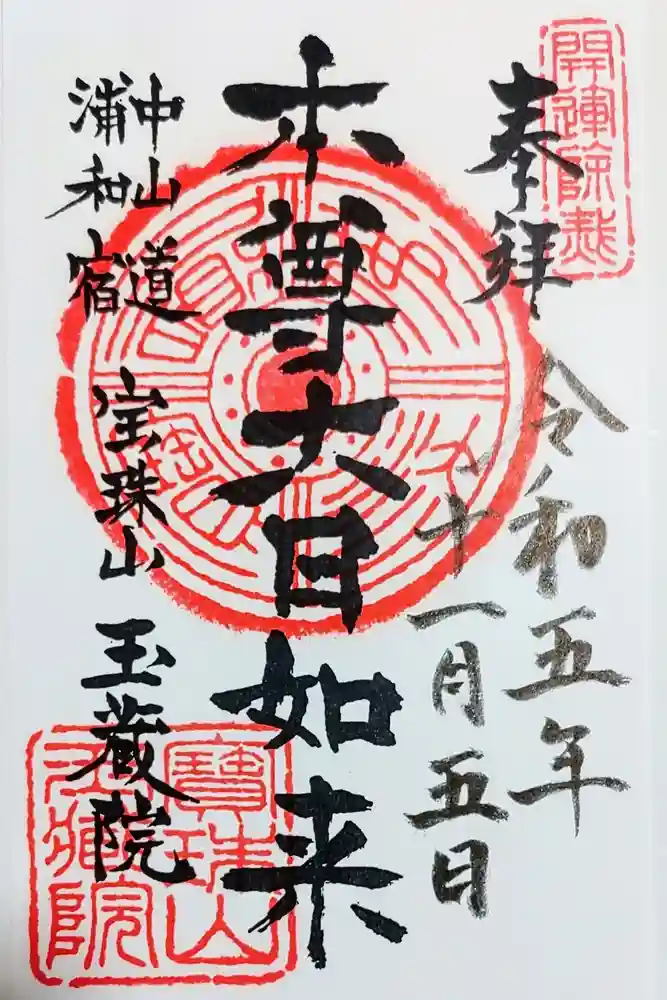 奉拝
令和五年
十一月五日
本尊大日如来
中山道
浦和宿
宝珠山
玉蔵院
寶珠山
玉蔵院